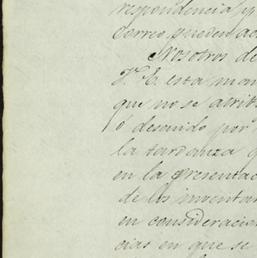 respondencia y
correo, pueden ac
Nosotros de
V. E. esta man
que no se atrib
ó desuido por
la tardanza q
en la presentac
de los inventar
en consideracio
cias en que se